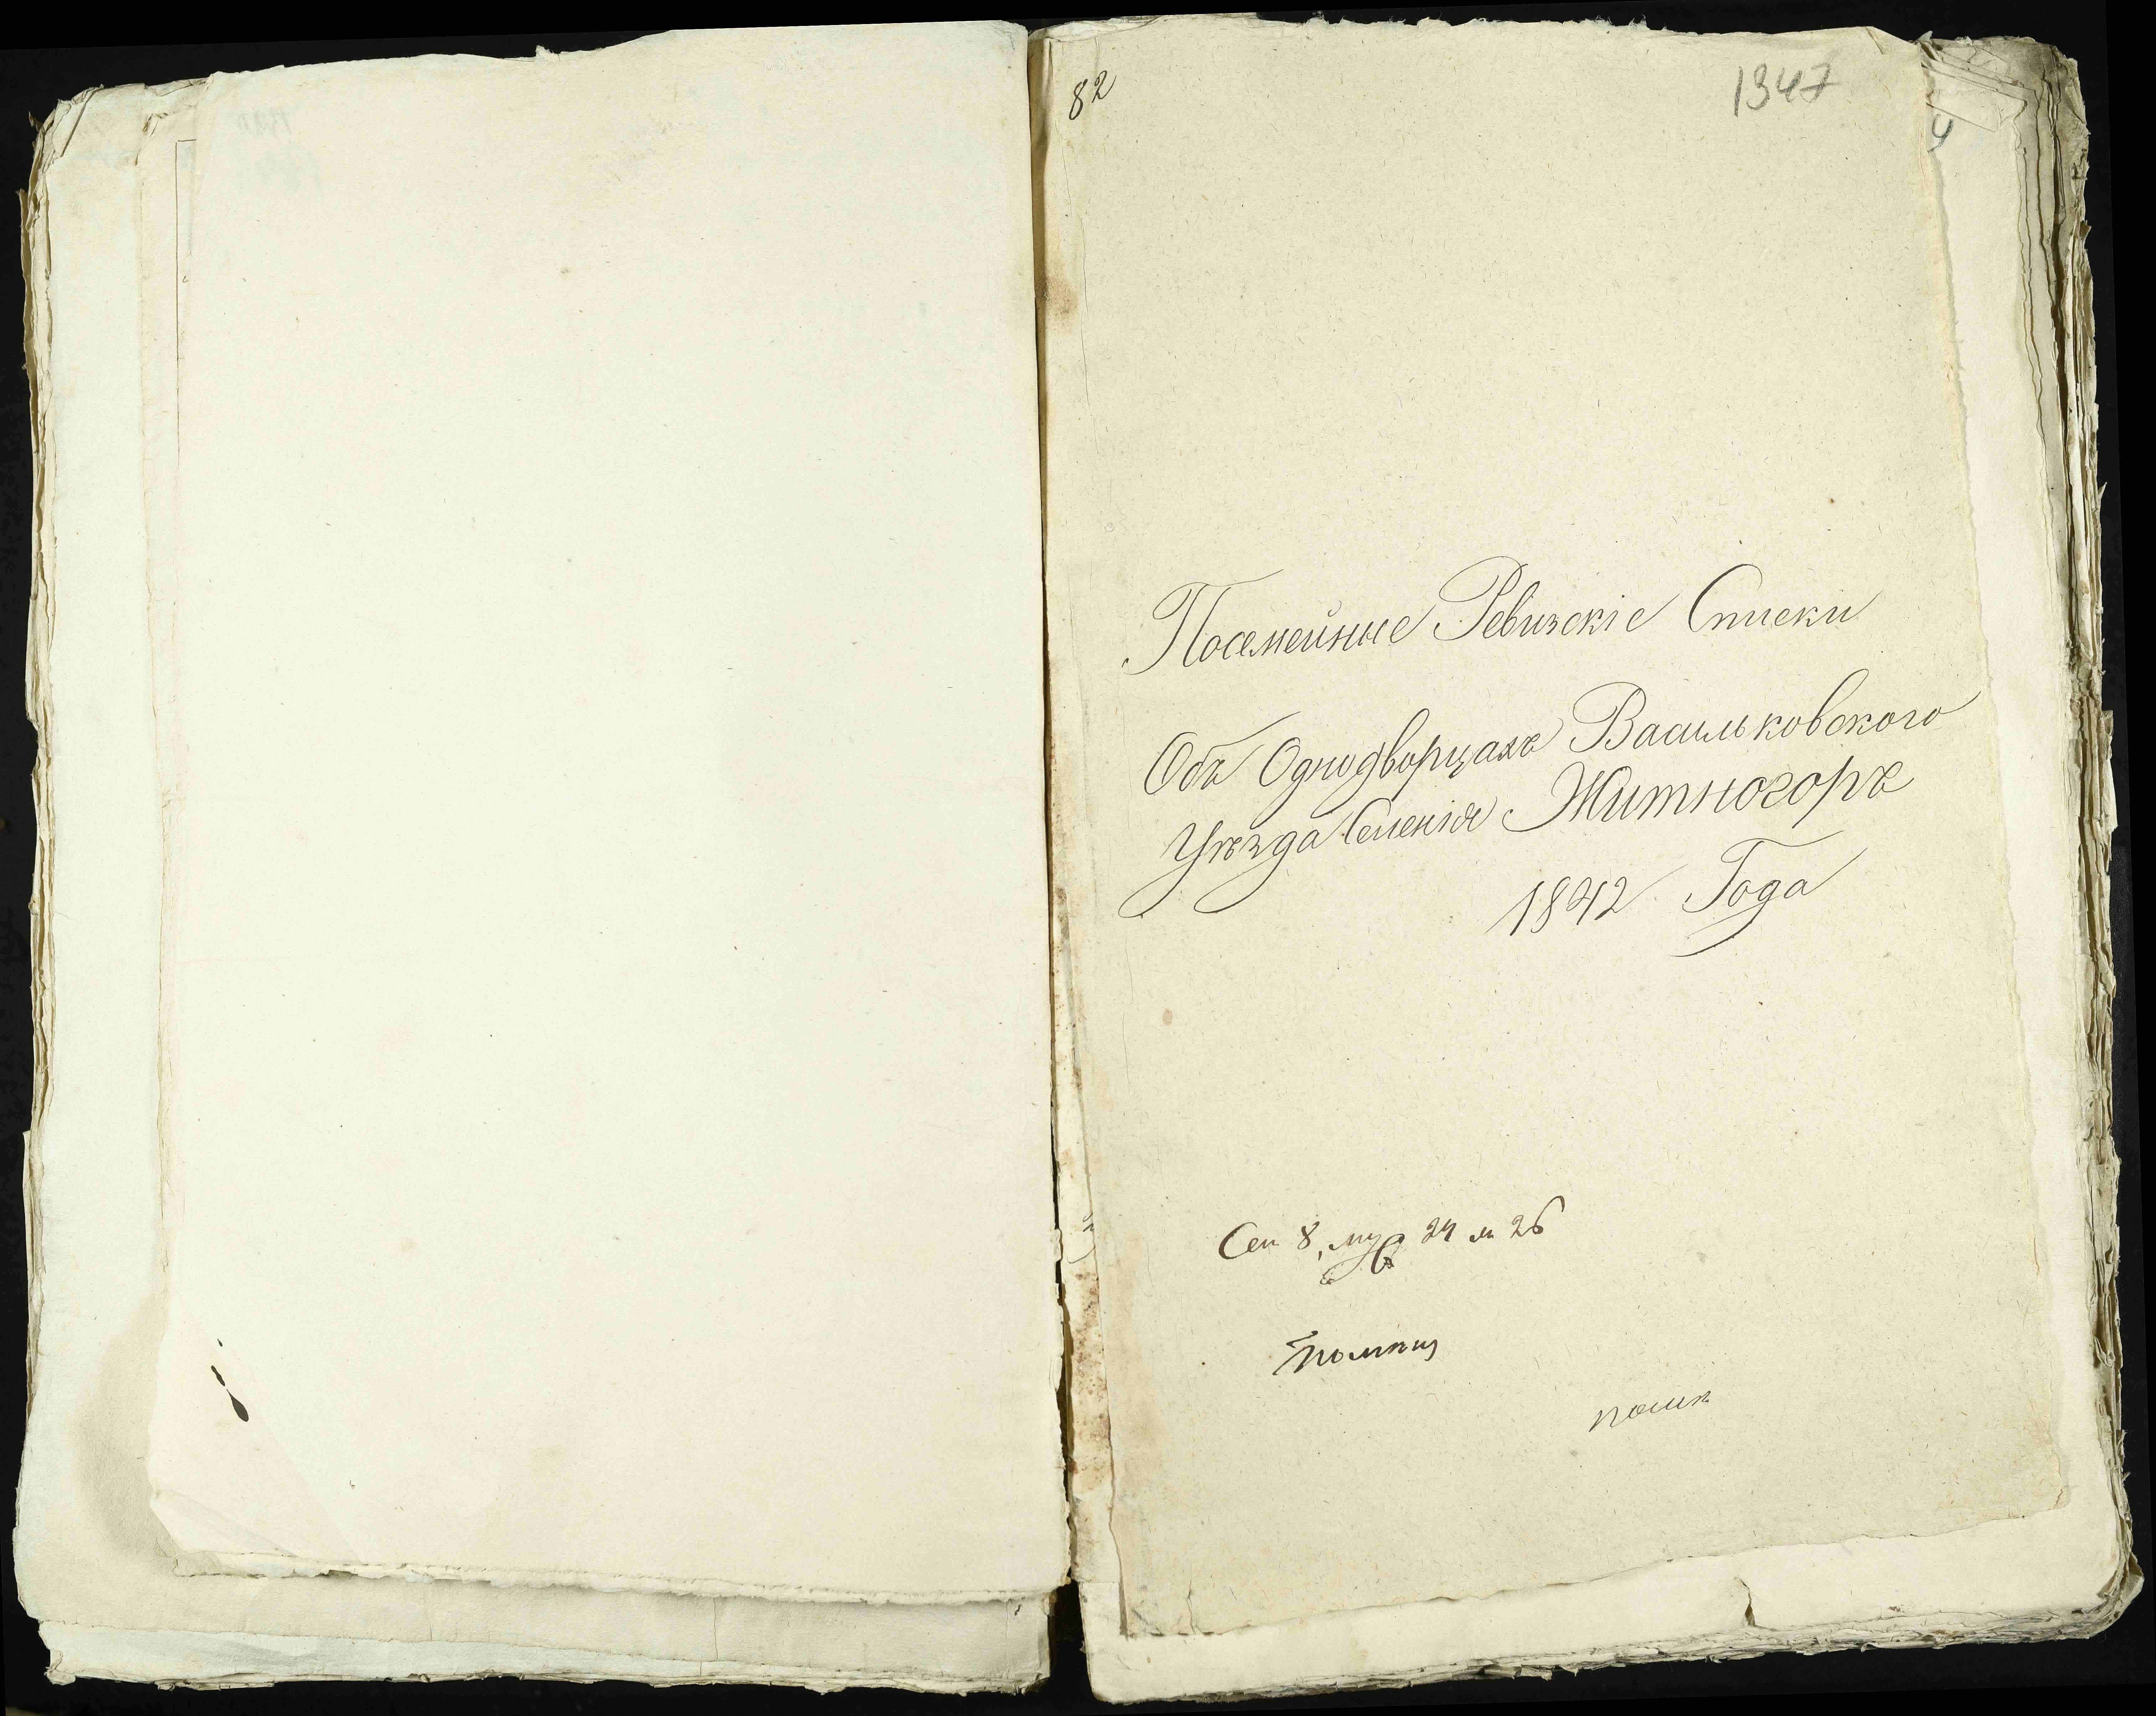 82
1347
Посемейные Ревизскіе Списки
Объ Однодворцахъ Васильковского
Уѣзда Селенія Житногоръ
1842 Года
Сем 8, муж 24 ж 26